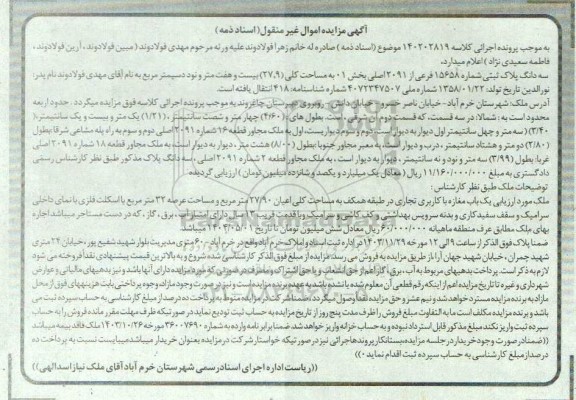 آگهی مزایده اموال غیر منقول ( اسناد ذمه )
به موجب پرونده اجرائی کلاسه ۱۴۰۲۰۲۸۱۹ موضوع (اسناد ذمه ) صادره له خانم زهرا فولادوند علیه ورثه مرحوم مهدی فولادوند ( مبین فولادوند، آرین فولادوند،
فاطمه سعیدی نژاد ) اعلام میدارد.
سه دانگ پلاک ثبتی شماره ۱۵۶۵۸ فرعی از ۲۰۹۱ اصلی بخش ۰۱ به مساحت کلی (۲۷.۹) بیست و هفت متر و نود دسیمتر مربع به نام آقای مهدی فولادوند نام پدر:
نورالدین تاریخ تولد: ۱۳۵۸/۰۱/۲۲ شماره ملی ۴۰۷۲۳۴۷۵۰۷ شماره شناسنامه: ۴۱۸ انتقال یافته است.
آدرس ملک: شهرستان خرم آباد - خیابان ناصر خسرو - خیابان دانش - روبروی دبیرستان به موجب پرونده اجرائی کلاسه فوق مزایده میگردد . حدود اربعه
محدود است به : شمالا: در سه قسمت، که قسمت دوم آن شرقی است، بطول های (۴/۶۰) چهار متر و شصت سانتیمتر ، (۱/۲۱) یک متر و بیست و یک سانتیمتر،
(۳/۴۰) سه متر و چهل سانتیمتر اول دیوار به دیوار است، دوم و سوم دیواریست، اول به ملک مجاور قطعه ۱۶ شماره ۲۰۹۱ اصلی دوم و سوم به راه پله مشاعی شرقا: بطول
(۲/۸۰) دو متر و هشتاد سانتیمتر ، درب و دیوار است ، به معبر مجاور جنوبا: بطول (۸/۰۰) هشت متر ، دیوار به دیوار است ، به ملک مجاور قطعه ۱۸ شماره ۲۰۹۱ اصلی
غربا: بطول (۳/۹۹) سه متر و نود و نه سانتیمتر ، دیوار به دیوار است ، به ملک مجاور قطعه ۲ شماره ۲۰۹۱ اصلی ، سه دانگ پلاک مذکور طبق نظر کارشناس رسمی
دادگستری به مبلغ ۱۱/۱۶۰/۰۰۰/۰۰۰ ریال (معادل یک میلیارد و یکصد و شانزده میلیون تومان ) ارزیابی گردیده
توضیحات ملک طبق نظر کارشناس :
ملک مورد ارزیابی یک باب مغازه با کاربری تجاری در طبقه همکف به مساحت کلی اعیان ۲۷/۹۰ متر مربع و مساحت عرصه ۳۲ متر مربع با اسکلت فلزی با نمای داخلی
سرامیک و سقف سفید کاری و بدنه سرویس بهداشتی و کف کاشی و سرامیک و با قدمت قریب سال دارای امتیازات برق ، گاز ، که در دست مستاجر میباشد اجاره
بهای ملک مطابق عرف منطقه ماهیانه ۶۰/۰۰۰/۰۰۰ ریال معادل شش میلیون تومان تا تاریخ ۱۴۰۴/۰۵/۰۱ میباشد
ضمنا پلاک فوق الذکر از ساعت ۹ الی ۱۲ مورخه ۱۴۰۳/۱۱/۲۹ در اداره ثبت اسناد و املاک خرم آباد واقع در خرم آباد ۶۰ متری مدیریت بلوار شهید شفیع پور ، خیابان ۲۴ متری
شهید چمران ، خیابان شهید جهان آرا از طریق مزایده به فروش می رسد، مزایده از مبلغ فوق الذکر کارشناسی شده شروع و به بالاترین قیمت پیشنهادی نقدا فروخته می شود
لازم به ذکر است . پرداخت بدهیهای مربوط به آب ، برق ، گاز اعم از حق انشعاب و یا حق اشتراک و مصرف در صورتی که مورد مزایده دارای آنها باشد و نیز بدهیهای مالیاتی و عوارض
شهرداری و غیره تا تاریخ مزایده اعم از اینکه رقم قطعی آن معلوم شده یا نشده باشد به عهده برنده مزایده است و نیز در صورت وجود مازاد وجوه پرداختی بابت هزینههای فوق از محل
مازاد به برنده مزایده مسترد خواهد شد و نیم عشر و حق مزایده نقدا وصول میگردد ضمنا شرکت در مزایده منوط به پرداخت ده درصد از مبلغ کارشناسی به حساب سپرده ثبت می
باشد و برنده مزایده مکلف است ما به التفاوت مبلغ فروش را ظرف مدت پنج روز از تاریخ مزایده به حساب ثبت تودیع نماید در صورتی که ظرف مهلت مقرر مانده فروش را به حساب
سپرده ثبت واریز نکند مبلغ مذکور قابل استرداد نبوده و به حساب خزانه واریز خواهد شد. ضمنا برابر نامه وارده به شماره ۳۶۰۰۷۶۹۰ مورخه ۱۴۰۳/۱۰/۲۶ ملک فاقد بیمه میباشد
((ضمنا در صورت وجود خریدار در جلسه مزایده، بستانکار پرونده‌ها اجرائی نیز در صورتیکه خواستار شرکت در مزایده بعنوان خریدار میباشد میبایست نسبت به پرداخت ده
درصد از مبلغ کارشناسی به حساب سپرده ثبت اقدام نماید ))
((ریاست اداره اجرای اسناد رسمی شهرستان خرم آباد آقای ملک نیاز اسدالهی))